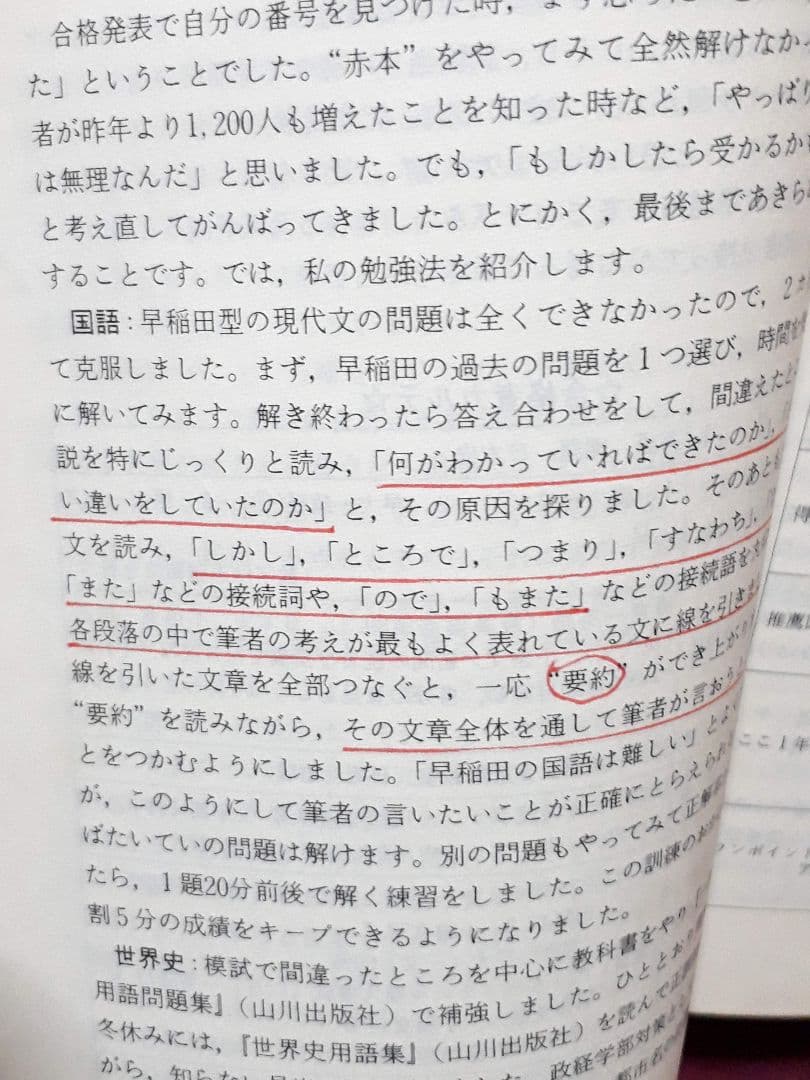 合格発表で自分の番号を見つけた時，まず思った
た」ということでした。“赤本”をやってみて全然解けなか
者が昨年より1,200人も増えたことを知った時など，「やっぱり
は無理なんだ」と思いました。でも，「もしかしたら受かるかも
と考え直してがんばってきました。とにかく，最後まであきら
することです。では，私の勉強法を紹介します。
国語：早稲田型の現代文の問題は全くできなかったので，2
て克服しました。まず，早稲田の過去の問題を1つ選び，時間
に解いてみます。解き終わったら答え合わせをして，間違えた
説を特にじっくりと読み，「何がわかっていればできたのか」，
い違いをしていたのか」と，その原因を探りました。そのあと
文を読み，「しかし」，「ところで」，「つまり」，「すなわち」，
「また」などの接続詞や，「ので」，「もまた」などの接続語を
各段落の中で筆者の考えが最もよく表れている文に線を引き
線を引いた文章を全部つなぐと，一応“要約”ができ上がり
“要約”を読みながら，その文章全体を通して筆者が言おう
とをつかむようにしました。「早稲田の国語は難しい」とよく
が，このようにして筆者の言いたいことが正確にとらえられ
ばたいていの問題は解けます。別の問題もやってみて正解
たら，1題20分前後で解く練習をしました。この訓練のおか
割5分の成績をキープできるようになりました。
世界史：模試で間違ったところを中心に教科書をやり『
用語問題集』（山川出版社）で補強しました。ひととおり
冬休みには，『世界史用語集』（山川出版社）を読んで正
がら，知らない
政経学部対策
推薦
ここ1年
ンポイント